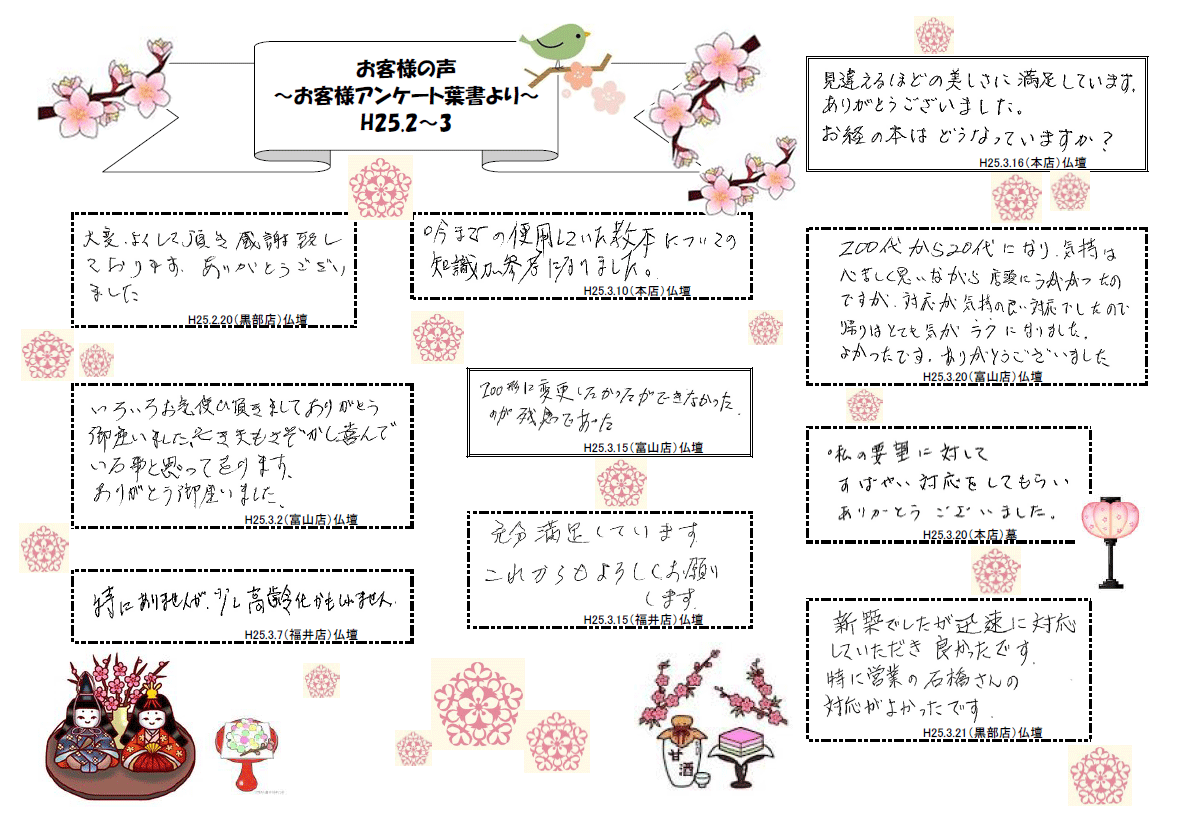 お客様の声
～お客様アンケート葉書より～
H25.2～3
大変よくして頂き感謝致し
ております。ありがとうござい
ました
H25.2.20（黒部店）仏壇
いろいろお気使い頂きましてありがとう
御座いました。亡き夫もさぞかし喜んで
いる事と思って居ります。
ありがとう御座いました。
H25.3.2（富山店）仏壇
特にありませんが、少し高齢化かもしれません。
H25.3.7（福井店）仏壇
今までの使用していた教本についての
知識が参考になりました。
H25.3.10（本店）仏壇
200形に変更したかったができなかった
のが残念であった
H25.3.15（富山店）仏壇
充分満足しています
これからもよろしくお願い
します。
H25.3.15（福井店）仏壇
見違えるほどの美しさに満足しています。
ありがとうございました。
お経の本はどうなっていますか？
H25.3.16（本店）仏壇
200代から20代になり、気持は
心苦しく思いながら店頭にうかがったの
ですが、対応が気持の良い対応でしたので
帰りはとても気がラクになりました。
よかったです。ありがとうございました
H25.3.20（富山店）仏壇
私の要望に対して
すばやい対応をしてもらい
ありがとうございました。
H25.3.20（本店）墓
新築でしたが迅速に対応
していただき良かったです。
特に営業の石橋さんの
対応がよかったです。
H25.3.21（黒部店）仏壇
甘酒